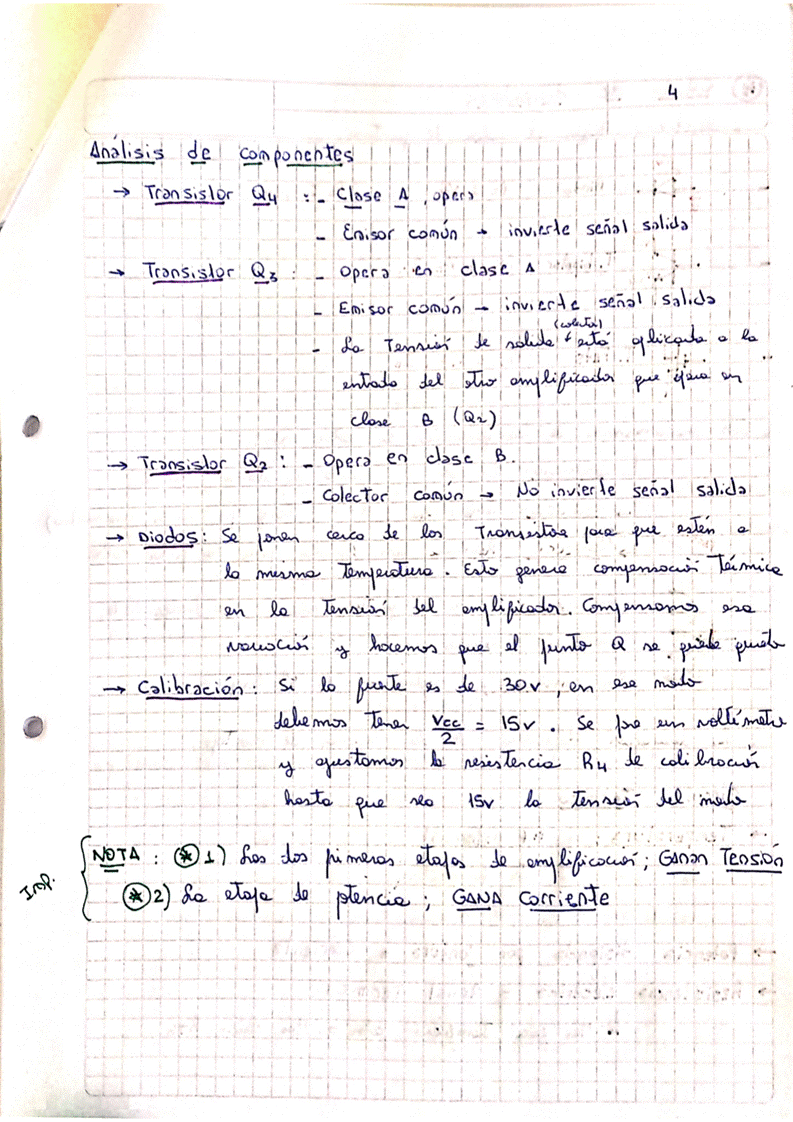 4
Análisis de componentes
→ Transistor Q4 : - Clase A, opera
- Emisor común → invierte señal salida
→ Transistor Q3 : - Opera en clase A
- Emisor común → invierte señal salida
(colector)
- La Tensión de salida está aplicada a la
entrada del otro amplificador que opera en
clase B (Q2)
→ Transistor Q2 : - Opera en clase B.
- Colector común → No invierte señal salida
→ Diodos: Se ponen cerca de los Transistores para que estén a
la misma Temperatura. Esto genera compensación Térmica
en la tensión del amplificador. Compensamos esa
variación y hacemos que el punto Q se quede quieto
→ Calibración: Si la fuente es de 30v, en ese nodo
debemos tener Vcc/2 = 15v. Se pone un voltímetro
y ajustamos la resistencia R4 de calibración
hasta que sea 15v la tensión del nodo
Imp. NOTA : * 1) Las dos primeras etapas de amplificación; GANAN TENSIÓN
* 2) La etapa de potencia; GANA Corriente